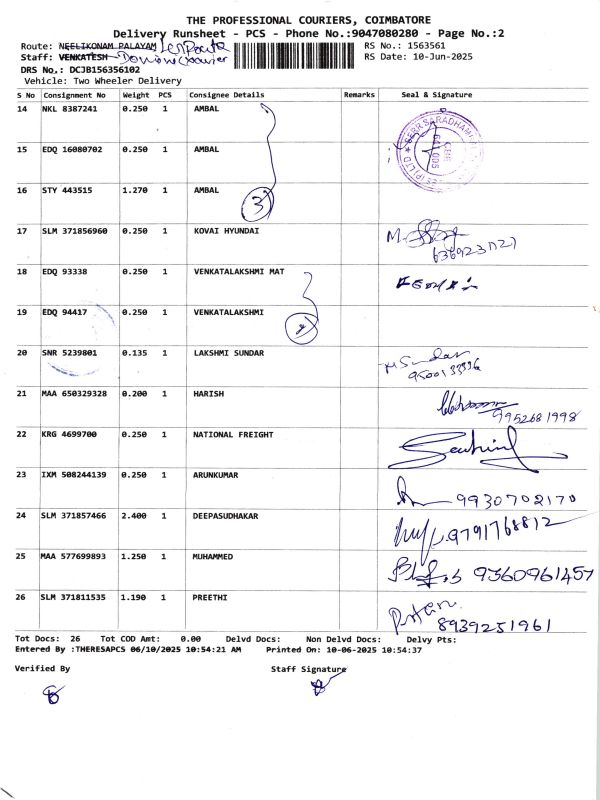 THE PROFESSIONAL COURIERS, COIMBATORE
Delivery Runsheet - PCS - Phone No.:9047080280 - Page No.:2
Route: NEELIKONAM PALAYAM
RS No.: 1563561
Staff: VENKATESH
RS Date: 10-Jun-2025
DRS No.: DCJB156356102
Vehicle: Two Wheeler Delivery
S No Consignment No Weight PCS Consignee Details Remarks Seal & Signature
14 NKL 8387241 0.250 1 AMBAL
15 EDQ 16080702 0.250 1 AMBAL
16 STY 443515 1.270 1 AMBAL
3
17 SLM 371856960 0.250 1 KOVAI HYUNDAI
18 EDQ 93338 0.250 1 VENKATALAKSHMI MAT
19 EDQ 94417 0.250 1 VENKATALAKSHMI
2
20 SNR 5239801 0.135 1 LAKSHMI SUNDAR
M Sundar
9500133396
21 MAA 650329328 0.200 1 HARISH
9952681998
22 KRG 4699700 0.250 1 NATIONAL FREIGHT
23 IXM 508244139 0.250 1 ARUNKUMAR
9930702170
24 SLM 371857466 2.400 1 DEEPASUDHAKAR
9791768812
25 MAA 577699893 1.250 1 MUHAMMED
9360961457
26 SLM 371811535 1.190 1 PREETHI
8939251961
Tot Docs: 26 Tot COD Amt: 0.00 Delvd Docs: Non Delvd Docs: Delvy Pts:
Entered By :THERESAPCS 06/10/2025 10:54:21 AM Printed On: 10-06-2025 10:54:37
Verified By Staff Signature